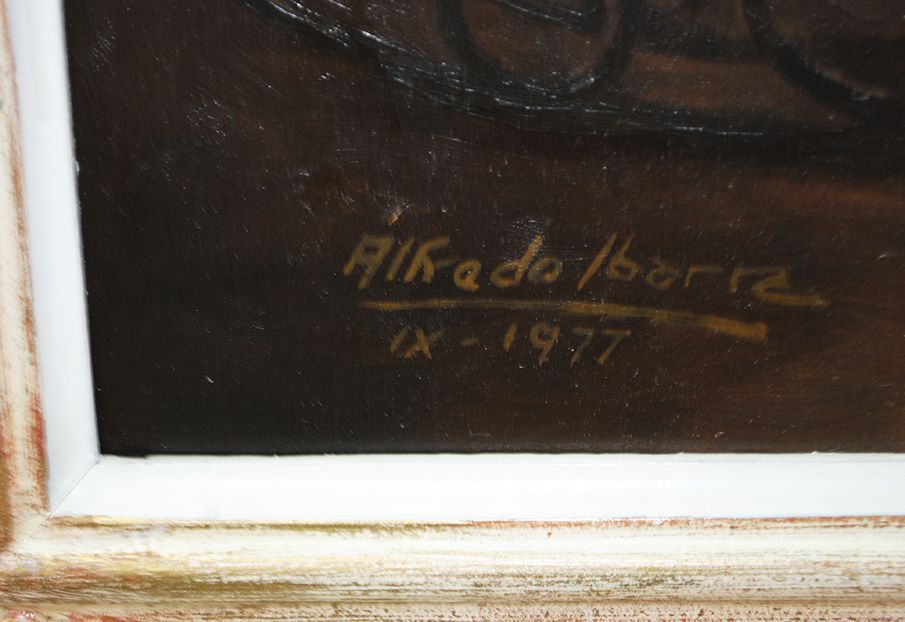 Alfredo Ibarra
IX - 1977